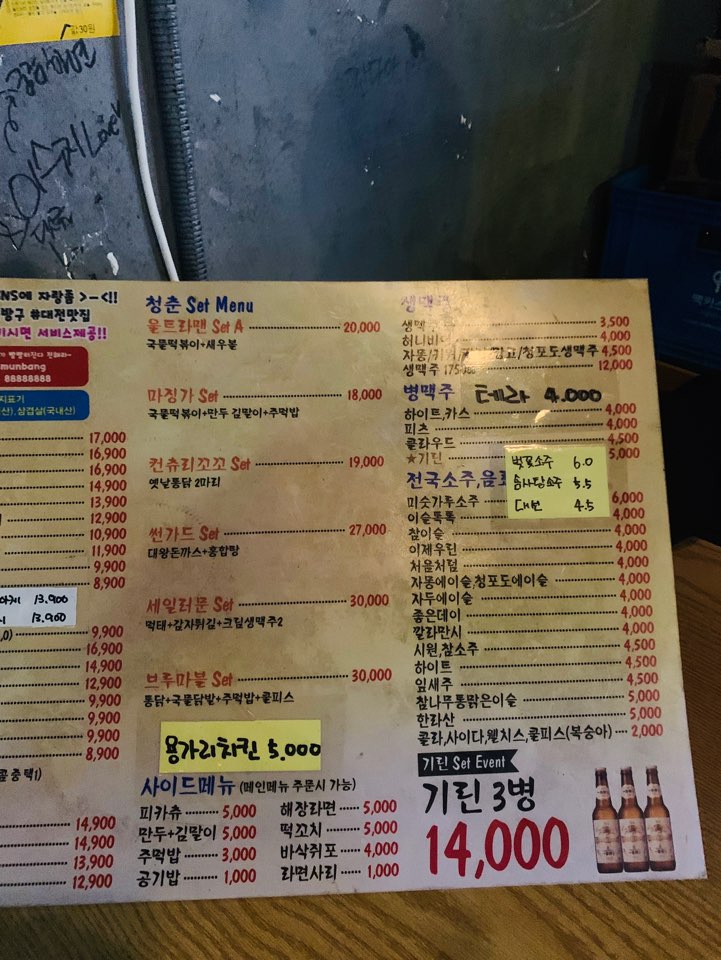 값30원
Love
NS에 자랑풉 >-<!!
방구 #대전맛집
기시면 서비스제공!!
munbang
88888888
지표기
산), 삼겹살(국내산)
17,000
16,900
16,900
14,900
13,900
12,900
10,900
11,900
9,900
9,900
8,900
13.900
13.900
9,900
16,900
14,900
12,900
9,900
9,900
9,900
8,900
14,900
14,900
13,900
12,900
청춘 Set Menu
울트라맨 Set A 20,000
국물떡볶이+새우볼
마징가 Set 18,000
국물떡볶이+만두 김말이+주먹밥
컨츄리꼬꼬 Set 19,000
옛날통닭 2마리
썬가드 Set 27,000
대왕돈까스+홍합탕
세일러문 Set 30,000
먹태+감자튀김+크림생맥주2
브루마블 Set 30,000
통닭+국물닭발+주먹밥+쿨피스
용가리치킨 5.000
사이드메뉴 (메인메뉴 주문시 가능)
피카츄 5,000
만두+김말이 5,000
주먹밥 3,000
공기밥 1,000
해장라면 5,000
떡꼬치 5,000
바삭쥐포 4,000
라면사리 1,000
생맥주
생맥 3,500
허니비 4,000
자몽/키위/ 망고/청포도생맥주 4,500
생맥주 175 12,000
병맥주 테라 4.000
하이트,카스 4,000
피츠 4,000
클라우드 4,500
★기린 5,000
전국소주,음료
벌떡소주 6.0
솜사탕소주 5.5
대선 4.5
미숫가루소주 6,000
이슬톡톡 4,000
참이슬 4,000
이제우린 4,000
처음처럼 4,000
자몽에이슬,청포도에이슬 4,000
자두에이슬 4,000
좋은데이 4,000
깔라만시 4,000
시원,참소주 4,500
하이트 4,500
잎새주 4,500
참나무통맑은이슬 5,000
한라산 5,000
콜라,사이다,웰치스,쿨피스(복숭아) 2,000
기린 Set Event
기린 3병
14,000